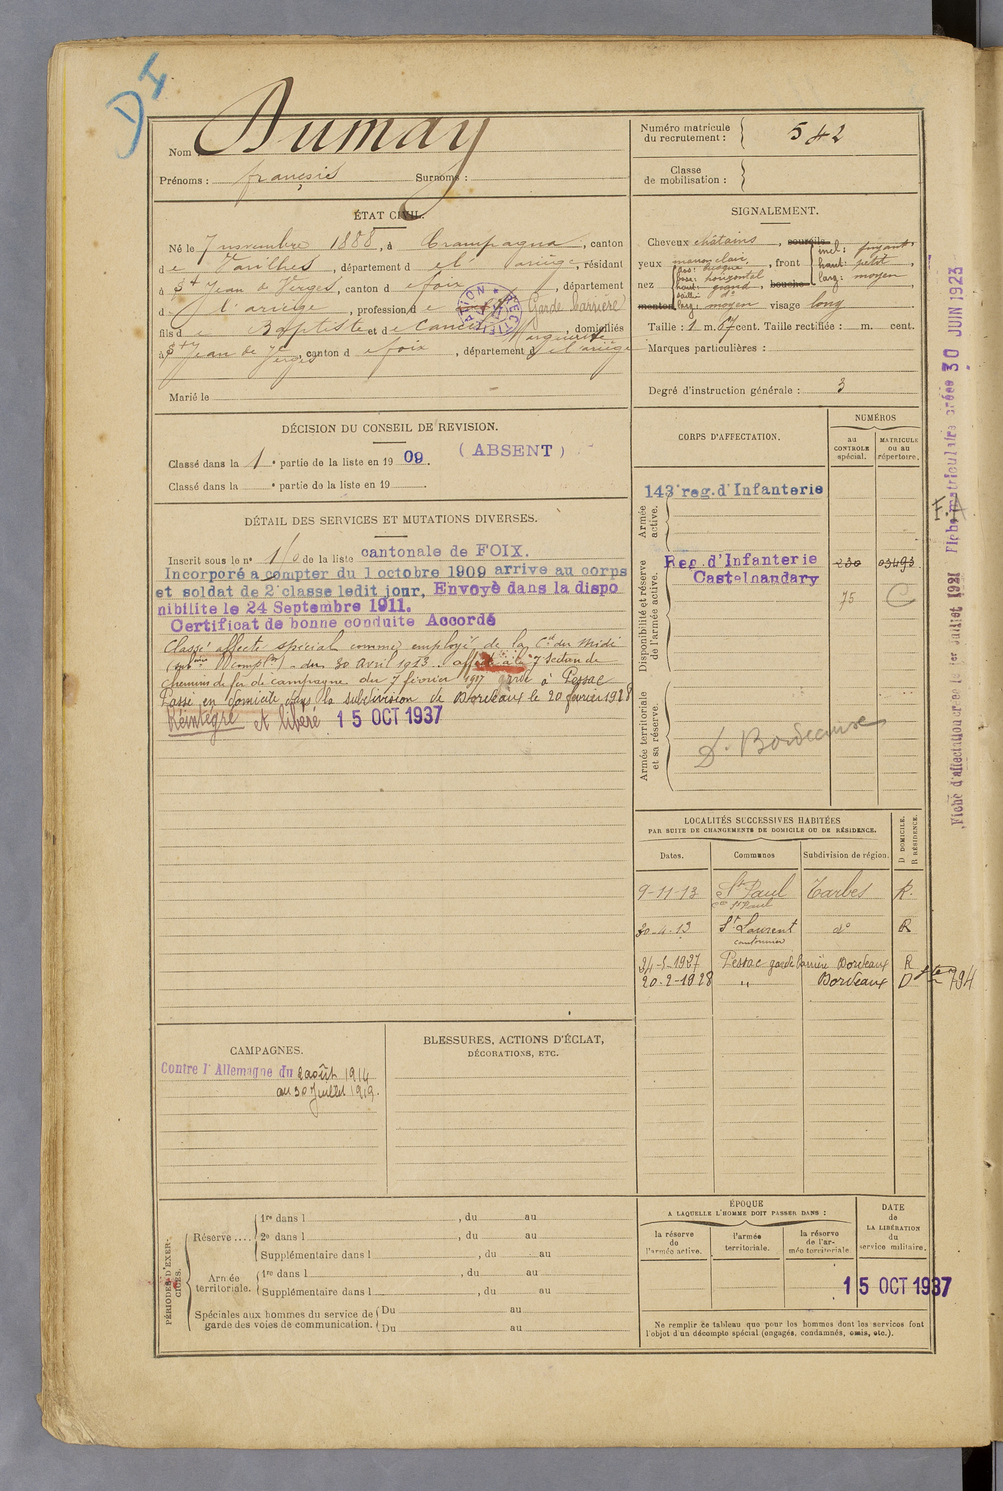 D I
Nom Dumay
Prénoms : françois Surnoms :
Numéro matricule du recrutement : 542
Classe de mobilisation :
ÉTAT CIVIL.
Né le 7 novembre 1888, à Crampagna, canton
de Varilhes, département de l'Ariège, résidant
à St Jean de Verges, canton de foix, département
de l'ariège, profession de Garde Barrière
fils de Baptiste et de Marguerite, domiciliés
à St Jean de Verges, canton de foix, département de l'ariège
Marié le
SIGNALEMENT.
Cheveux châtains, sourcils
yeux marron clair, front incl: fuyant
haut: petit
larg: moyen
nez dos: busqué
base: horizontal
haut: grand
saillie: d°
larg: moyen
bouche
menton visage long
Taille : 1 m. 67 cent. Taille rectifiée : m. cent.
Marques particulières :
Degré d'instruction générale : 3
DÉCISION DU CONSEIL DE REVISION.
Classé dans la 1e partie de la liste en 1909. (ABSENT)
Classé dans la e partie de la liste en 19
DÉTAIL DES SERVICES ET MUTATIONS DIVERSES.
Inscrit sous le n° de la liste cantonale de FOIX.
Incorporé a compter du 1 octobre 1909 arrive au corps
et soldat de 2e classe ledit jour. Envoyé dans la dispo
nibilite le 24 Septembre 1911.
Certificat de bonne conduite Accordé
Classé affecté spécial comme employé de la Cie du Midi
du 30 avril 1913. affecté à la 7 Section de
chemins de fer de campagne du 7 février 1917 à Pessac
Passé en domicile dans la subdivision de Bordeaux le 20 février 1928
Réintégré et libéré 15 OCT 1937
CORPS D'AFFECTATION.
NUMÉROS
au CONTROLE spécial.
MATRICULE ou au répertoire.
Armée active.
143e reg. d'Infanterie
Disponibilité et réserve de l'armée active.
Reg. d'Infanterie
Castelnaudary
230
03493
75
C
Armée territoriale et sa réserve.
S. Bordeaux
LOCALITÉS SUCCESSIVES HABITÉES
PAR SUITE DE CHANGEMENTS DE DOMICILE OU DE RÉSIDENCE.
Dates. Communes Subdivision de région. D DOMICILE. R RÉSIDENCE.
9-11-13 St Paul Tarbes R.
30-4-13 St Laurent d° R
cantonnier
24-5-1927 Pessac garde barrière Bordeaux R
20-2-1928 " Bordeaux D
CAMPAGNES.
Contre l'Allemagne du 2 août 1914
au 30 Juillet 1919.
BLESSURES, ACTIONS D'ÉCLAT,
DÉCORATIONS, ETC.
PÉRIODES D'EXERCICES.
Réserve.... 1re dans l , du au
2e dans l , du au
Supplémentaire dans l , du au
Armée territoriale. 1re dans l , du au
Supplémentaire dans l , du au
Spéciales aux hommes du service de garde des voies de communication. Du au
Du au
ÉPOQUE
A LAQUELLE L'HOMME DOIT PASSER DANS :
la réserve de l'armée active.
l'armée territoriale.
la réserve de l'armée territoriale.
DATE de LA LIBÉRATION du service militaire.
15 OCT 1937
Ne remplir ce tableau que pour les hommes dont les services font
l'objet d'un décompte spécial (engagés, condamnés, omis, etc.).
Fiche matriculaire créée 30 JUIN 1923
Fiche d'affectation créée le 1er Juillet 1921